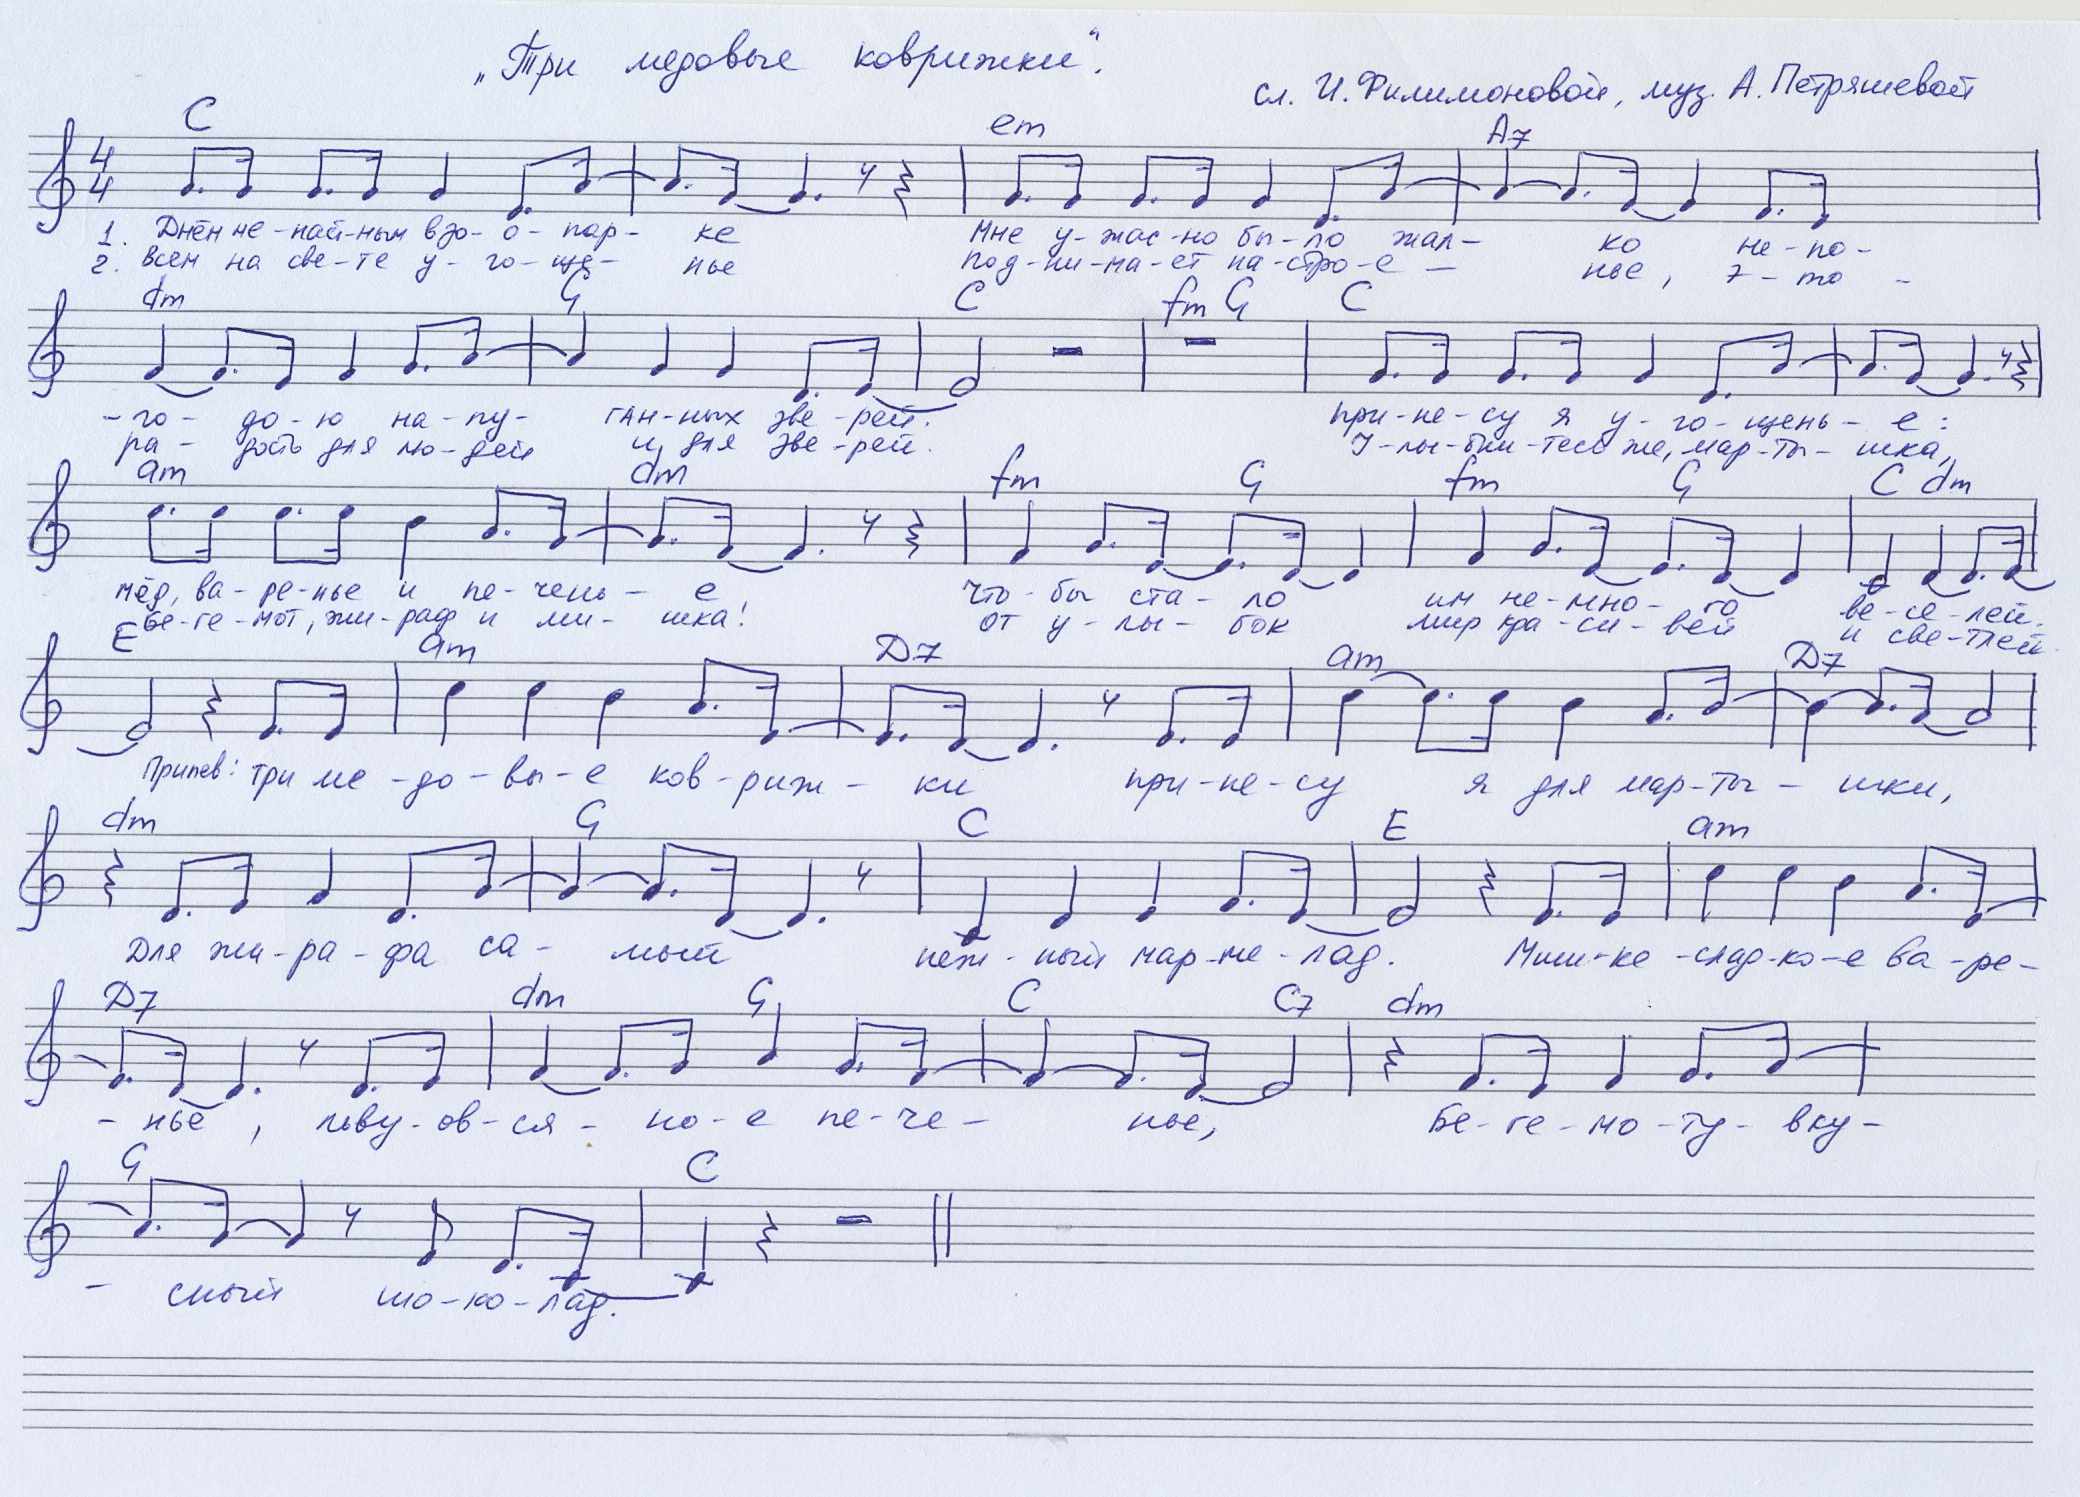 „Три медовые коврижки".
сл. И. Филимоновой, муз. А. Петряшевой
C em A7
4
4
1. Днём не-пай-ным в зо-о-пар- ке Мне у-жас-но бы-ло жал- ко не-по-
2. Всем на све-те у-го-ще- нье под-ни-ма-ет на-стро-е- нье, э-то-
dm G C fm G C
-го- до-ю на-пу- ган-ных зве-рей. при-не-су я у-го-щень-е:
ра- дость для лю-дей и для зве-рей. У-лы-бни-тесь же, мар-ты-шка,
am dm fm G fm G C dm
мёд, ва-ре-нье и пе-чень-е Что-бы ста-ло им не-мно-го ве-се-лей.
Бе-ге-мот, жи-раф и ми-шка! От у-лы-бок мир кра-си-вей и све-тлей.
E am D7 am D7
Припев: три ме-до-вы-е ков-риж-ки при-не-су я для мар-ты-шки,
dm G C E am
Для жи-ра-фа са- мый неж-ный мар-ме-лад. Миш-ке-слад-ко-е ва-ре-
D7 dm G C C7 dm
-нье, льву-ов-ся-но-е пе-че- нье, Бе-ге-мо-ту- вку-
G C
- сный шо-ко-лад.